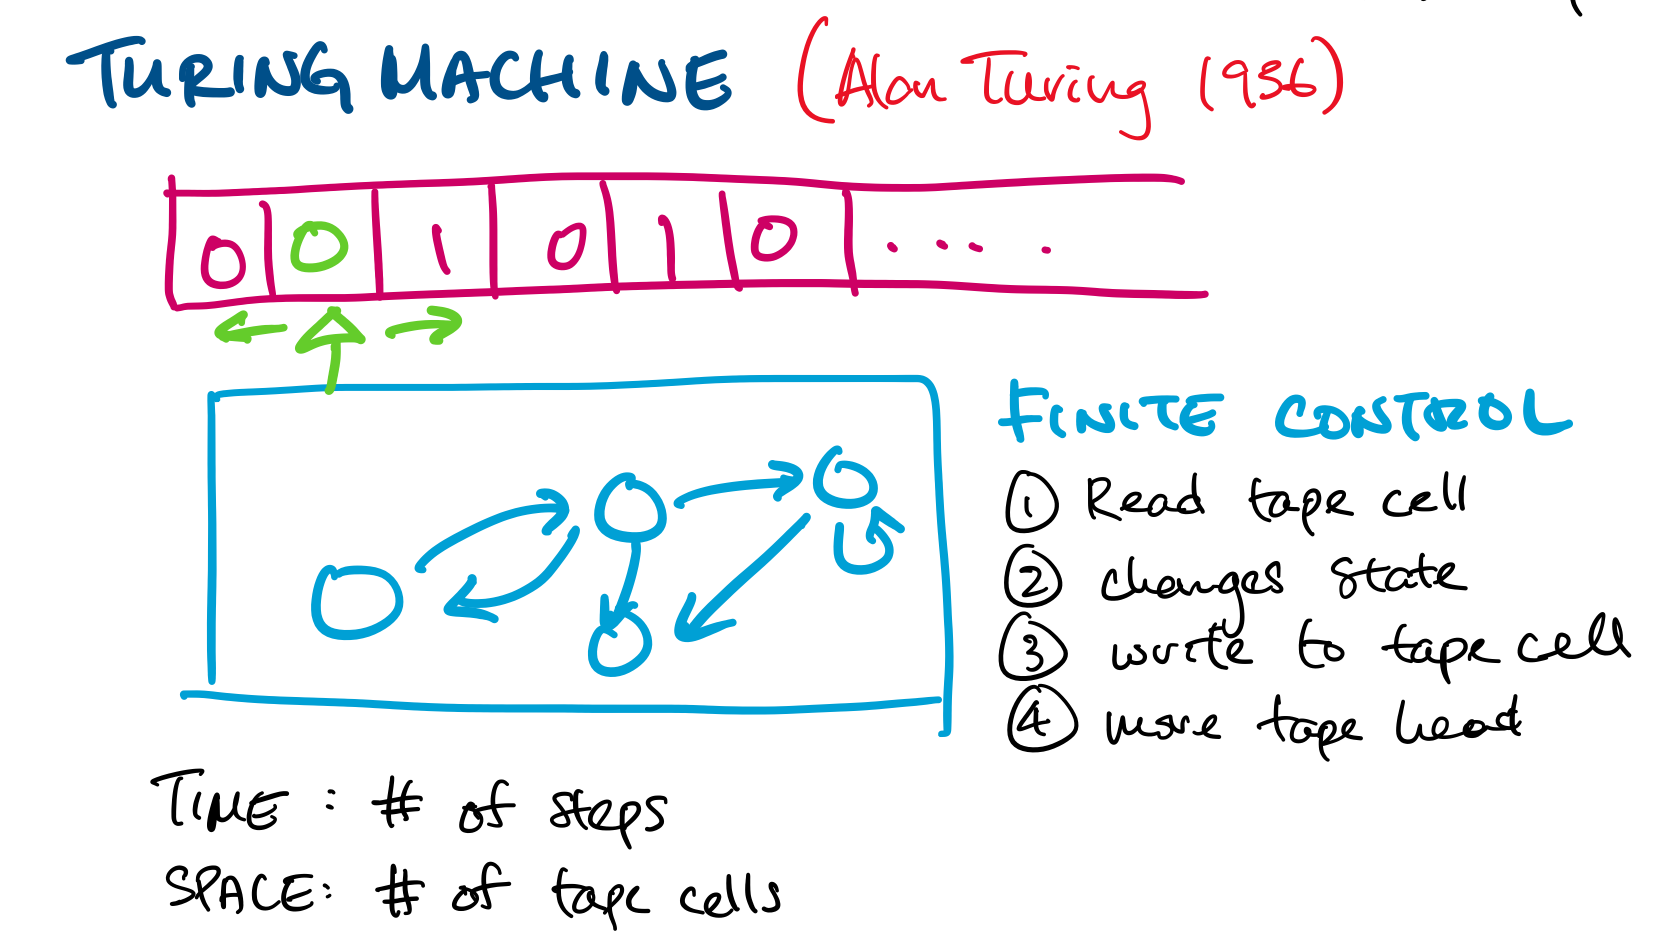 TURING MACHINE (Alan Turing 1936)
0 0 1 0 1 0 ....
FINITE CONTROL
① Read tape cell
② changes state
③ write to tape cell
④ move tape head
TIME: # of steps
SPACE: # of tape cells